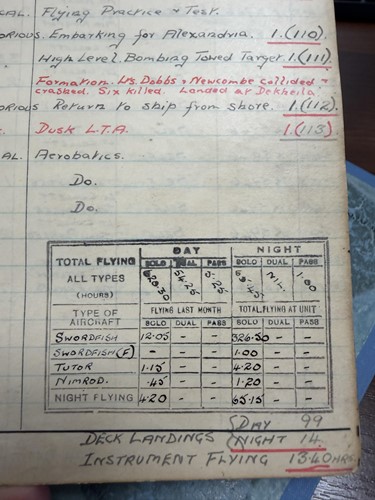 CAL. Flying Practice & Test.
ORIOUS. Embarking for Alexandria. 1.(110).
High Level. Bombing Towed Target. 1.(111).
Formation. Lts. Dobbs & Newcombe collided &
crashed. Six killed. Landed at Dekheila.
ORIOUS Return to ship from shore. 1.(112).
Dusk L.T.A. 1.(113)
AL. Aerobatics.
Do.
Do.
DAY NIGHT
TOTAL FLYING SOLO DUAL PASS SOLO DUAL PASS
ALL TYPES 54.25 5.25 Nil. 1.00
(HOURS)
TYPE OF FLYING LAST MONTH TOTAL FLYING AT UNIT
AIRCRAFT SOLO DUAL PASS SOLO DUAL PASS
SWORDFISH 12.05 - - 326.50 - -
SWORDFISH (F) - - - 1.00 - -
TUTOR 1.15 - - 4.20 - -
NIMROD. .45 - - 1.20 - -
NIGHT FLYING 4.20 - - 65.15 - -
DECK LANDINGS { DAY 99
NIGHT 14.
INSTRUMENT FLYING 13.40 HRS.